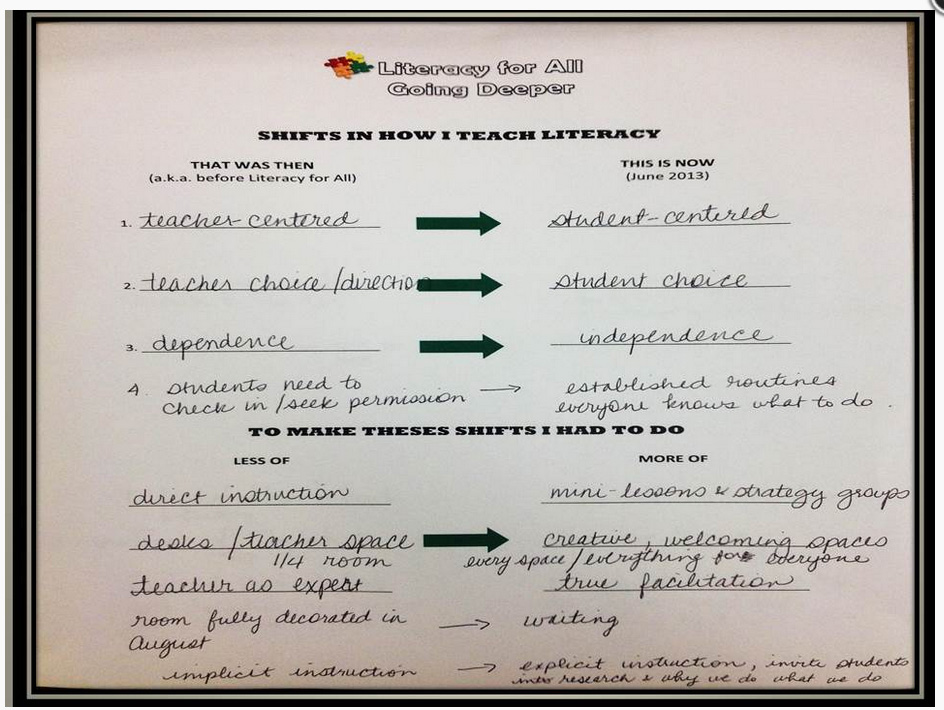 Literacy for All
Going Deeper
SHIFTS IN HOW I TEACH LITERACY
THAT WAS THEN
(a.k.a. before Literacy for All)
THIS IS NOW
(June 2013)
1. teacher-centered student-centered
2. teacher choice/direction student choice
3. dependence independence
4. students need to
check in/seek permission → established routines
everyone knows what to do.
TO MAKE THESES SHIFTS I HAD TO DO
LESS OF MORE OF
direct instruction mini-lessons & strategy groups
desks/teacher space creative, welcoming spaces
1/4 room every space/everything for everyone
teacher as expert true facilitation
room fully decorated in
August → waiting
implicit instruction → explicit instruction, invite students
into research & why we do what we do